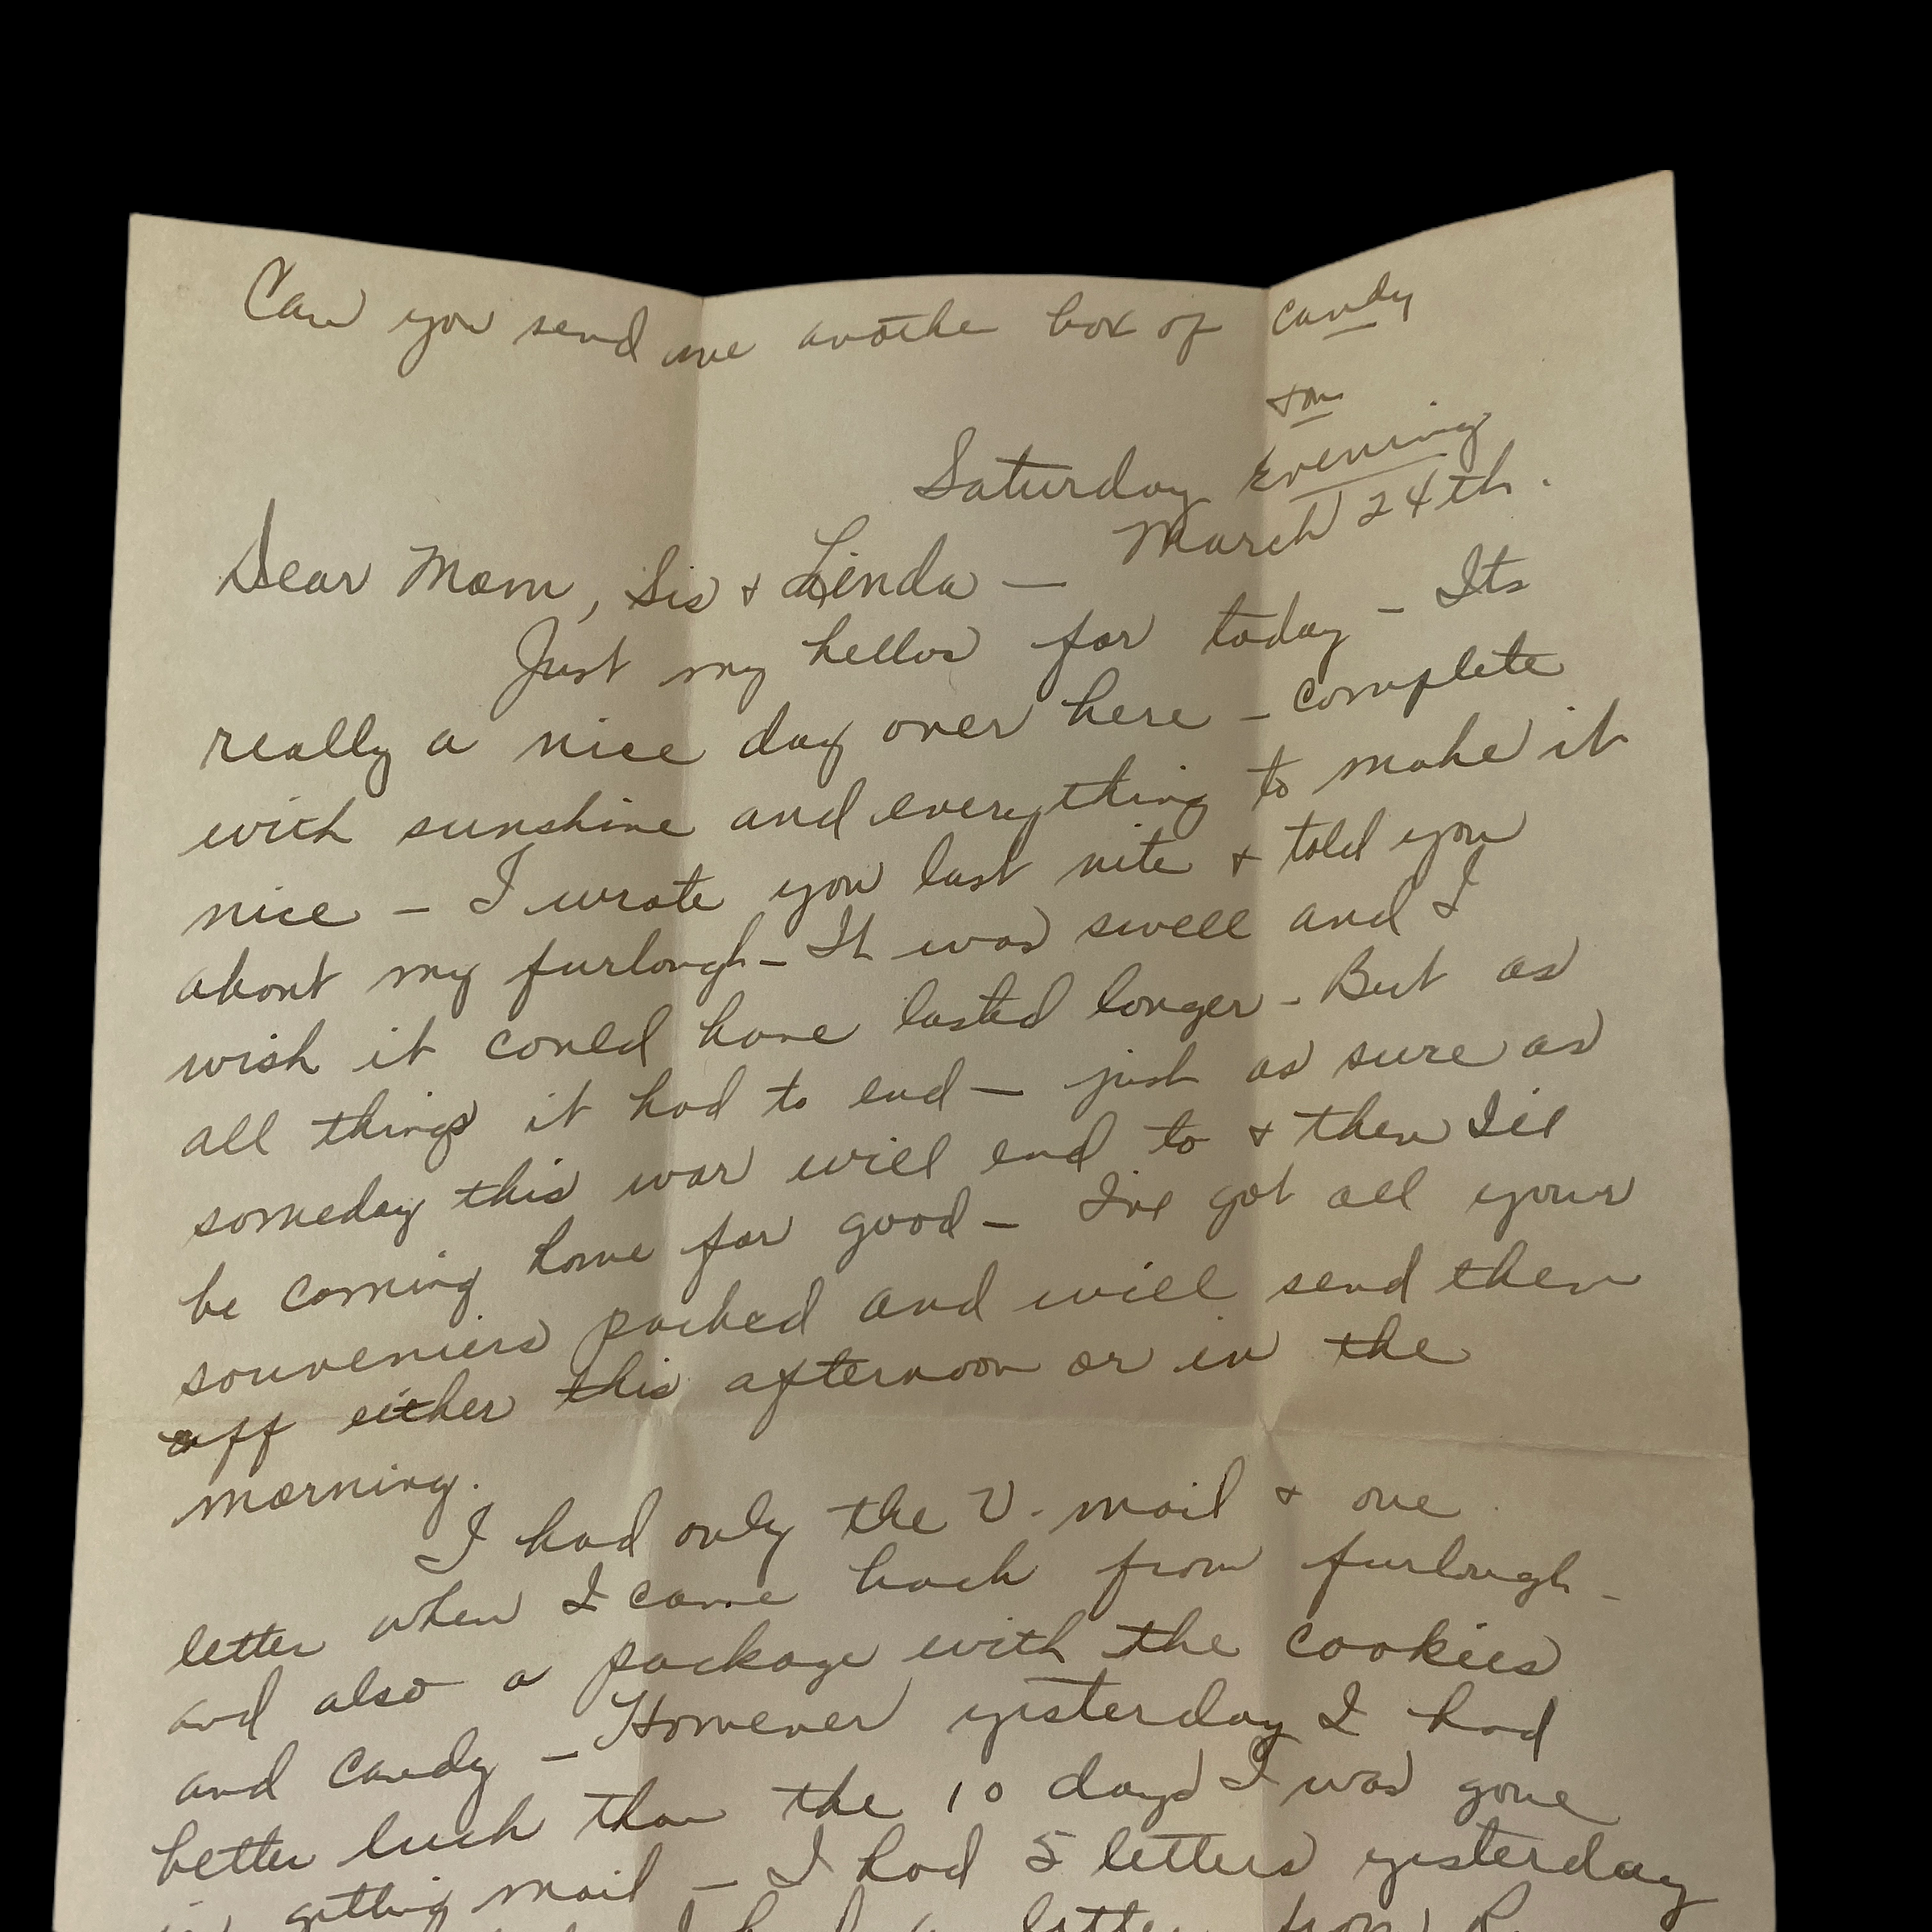 Can you send me anothe box of candy
Tom
Saturday Evening
March 24th.
Dear Mom, Sis + Linda —
Just my hellos for today — Its
really a nice day over here — complete
with sunshine and everything to make it
nice — I wrote you last nite + told you
about my furlough — It was swell and I
wish it could have lasted longer - But as
all things it had to end — just as sure as
someday this war will end to + then I'll
be coming home for good — I've got all your
souveniers packed and will send them
off either this afternoon or in the
morning.
I had only the V-mail + one
letter when I came back from furlough —
and also a package with the cookies
and candy — However yesterday I had
better luck than the 10 days I was gone
in getting mail — I had 5 letters yesterday
a letter from